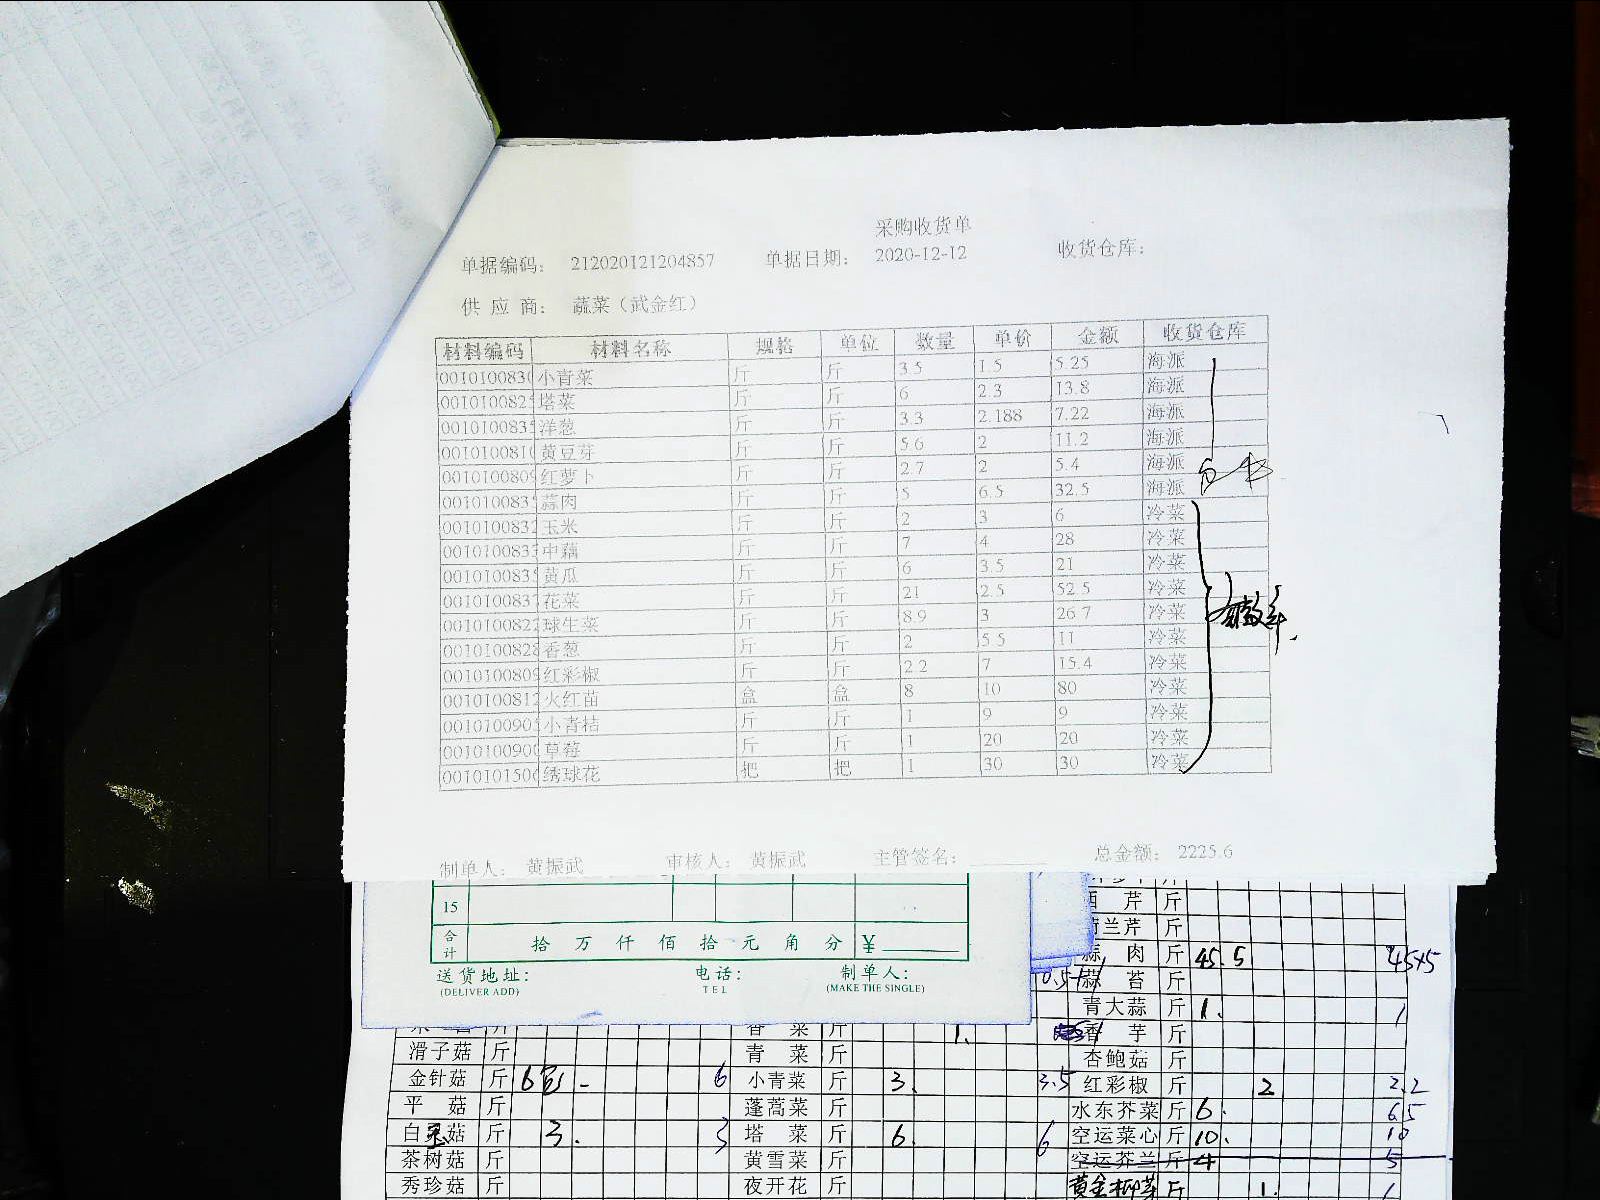 采购收货单
单据编码： 212020121204857 单据日期： 2020-12-12 收货仓库：
供 应 商： 蔬菜（武金红）
材料编码 材料名称 规格 单位 数量 单价 金额 收货仓库
0010100830 小青菜 斤 斤 3.5 1.5 5.25 海派
001010082 塔菜 斤 斤 6 2.3 13.8 海派
001010083 洋葱 斤 斤 3.3 2.188 7.22 海派
001010081 黄豆芽 斤 斤 5.6 2 11.2 海派
001010080 红萝卜 斤 斤 2.7 2 5.4 海派
001010083 蒜肉 斤 斤 5 6.5 32.5 海派
001010083 玉米 斤 斤 2 3 6 冷菜
001010083 中藕 斤 斤 7 4 28 冷菜
001010083 黄瓜 斤 斤 6 3.5 21 冷菜
001010083 花菜 斤 斤 21 2.5 52.5 冷菜
001010082 球生菜 斤 斤 8.9 3 26.7 冷菜
001010082 香葱 斤 斤 2 5.5 11 冷菜
001010080 红彩椒 斤 斤 2.2 7 15.4 冷菜
001010081 火红苗 盒 盒 8 10 80 冷菜
001010090 小青桔 斤 斤 1 9 9 冷菜
001010090 草莓 斤 斤 1 20 20 冷菜
001010150 绣球花 把 把 1 30 30 冷菜
制单人： 黄振武 审核人： 黄振武 主管签名： 总金额： 2225.6
15
合计 拾 万 仟 佰 拾 元 角 分 ¥
送货地址: 电话: 制单人:
(DELIVER ADD) TEL (MAKE THE SINGLE)
西 芹 斤
荷兰芹 斤
蒜 肉 斤 45. 5 45+5
蒜 苔 斤
青大蒜 斤 1. 1
香 菜 斤 1. 香 芋 斤
滑子菇 斤 青 菜 斤 杏鲍菇 斤
金针菇 斤 6包 - 6 小青菜 斤 3. 3.5 红彩椒 斤 2 2.2
平 菇 斤 蓬蒿菜 斤 水东芥菜 斤 6. 6.5
白玉菇 斤 3. 3 塔 菜 斤 6. 6 空运菜心 斤 10. 10
茶树菇 斤 黄雪菜 斤 空运芥兰 斤 4 5
秀珍菇 斤 夜开花 斤 斤 1. 1